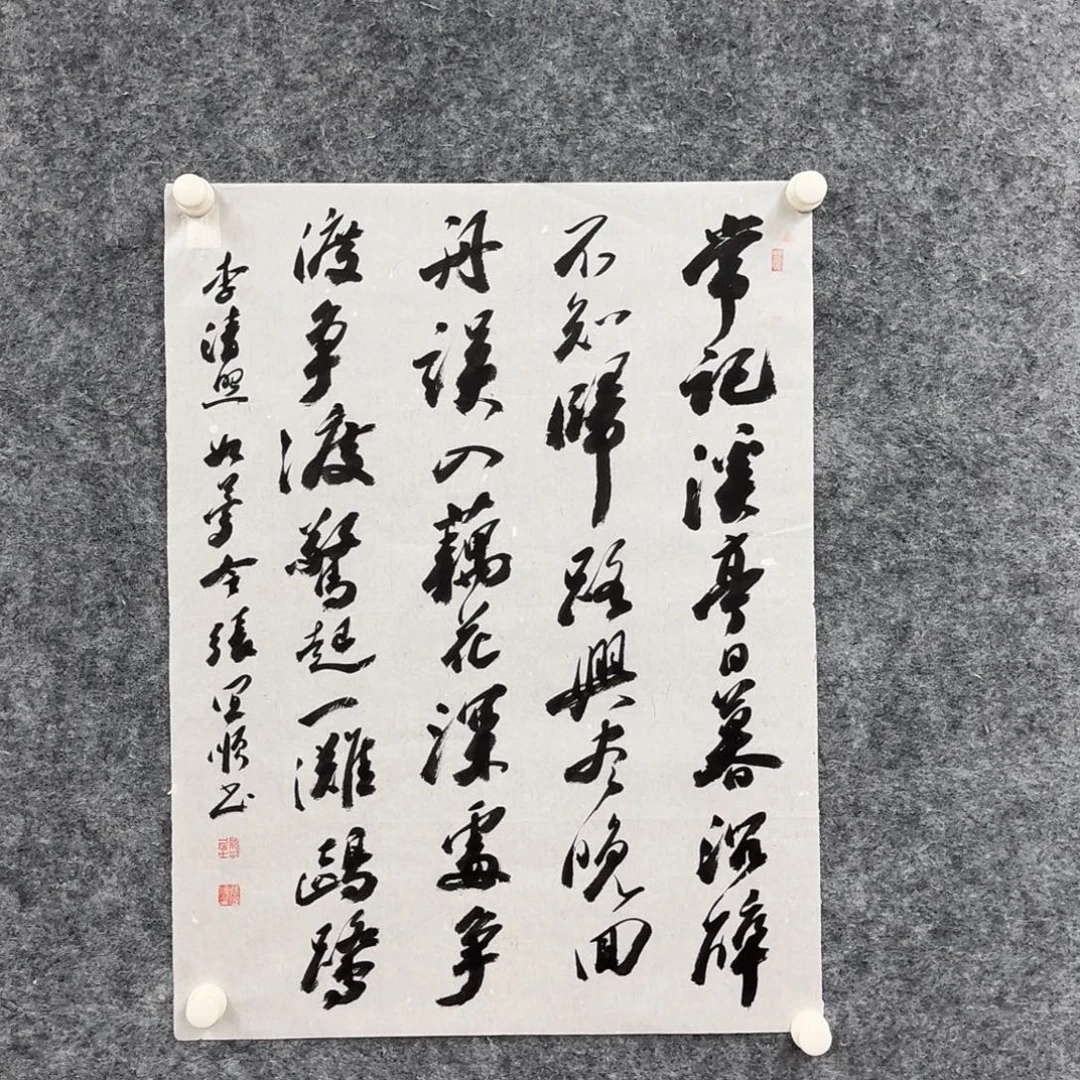 常記溪亭日暮沉醉
不知歸路興盡晚回
舟誤入藕花深處爭
渡爭渡驚起一灘鷗鷺
李清照如夢令張宜順书